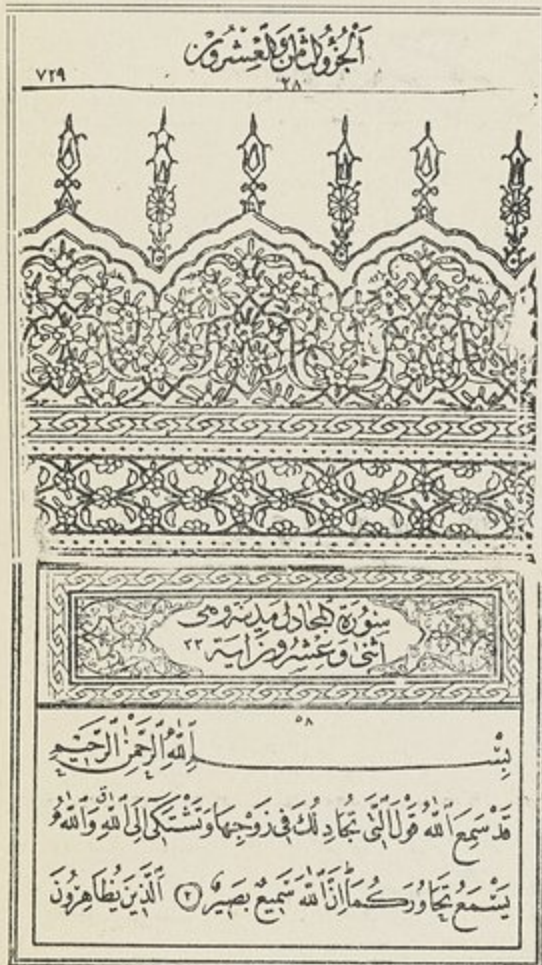 اَلْجُزْؤُ الثَّامِنُ وَالْعِشْرُونَ
٢٨
٧٢٩
سُورَةُ الْمُجَادِلَةِ مَدَنِيَّةٌ وَهِىَ
اثْنَتٰى وَعِشْرُونَ اٰيَةً ٢٢
٥٨
بِسْمِ اللّٰهِ الرَّحْمٰنِ الرَّحِيمِ
قَدْ سَمِعَ اللّٰهُ قَوْلَ الَّتِى تُجَادِلُكَ فِى زَوْجِهَا وَتَشْتَكٖى اِلَى اللّٰهِ وَاللّٰهُ
يَسْمَعُ تَحَاوُرَكُمَا اِنَّ اللّٰهَ سَمِيعٌ بَصِيرٌ ٢ اَلَّذِينَ يُظَاهِرُونَ